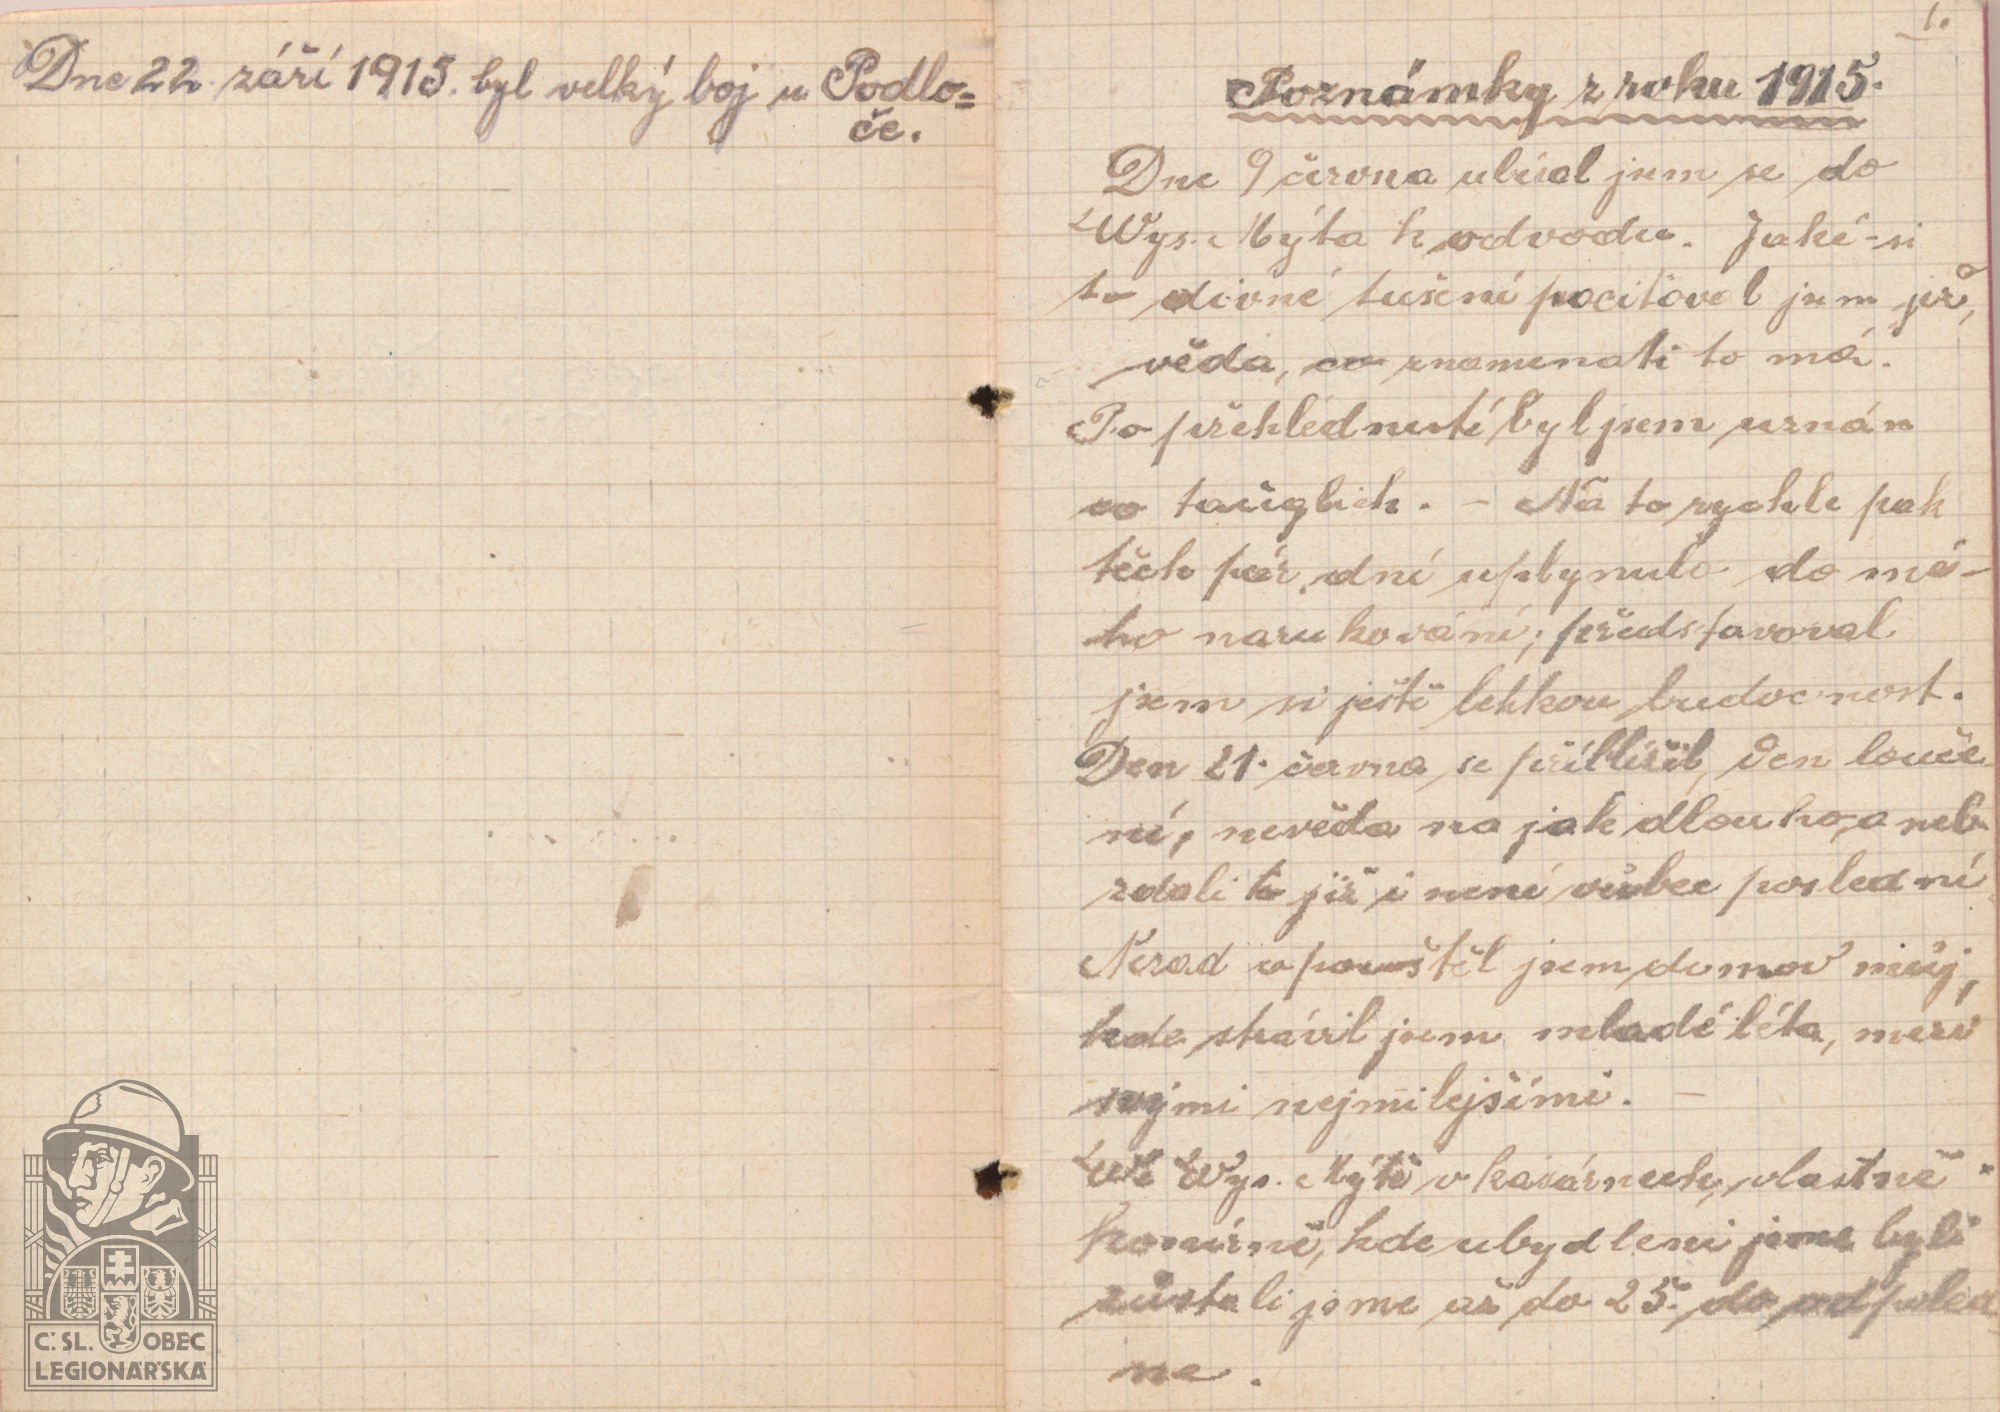 Dne 22. září 1915. byl velký boj u Podlo=
če.
1.
Poznámky z roku 1915.
Dne 9 června ubíral jsem se do
Wys. Mýta k odvodu. Jaké-si
to divné tušení pociťoval jsem již,
věda, co znamenati to má.
Po přehlédnutí byl jsem uznán
co tauglich. - Na to rychle pak
těch pár dní uplynulo do mé-
ho narukování; představoval
jsem si ještě lehkou budoucnost.
Den 21. června se přiblížil, den louče
ní, nevěda na jak dlouho, a neb
zdali to již i není vůbec poslední
Nerad opouštěl jsem domov můj,
kde strávil jsem mladé léta, mezi
svými nejmilejšími. -
Wys. Mýtě v kasárnech, vlastně
komírně, kde ubydleni jsme byli
zůstali jsme až do 25. do odpoled
ne.
C.SL. OBEC
LEGIONÁŘSKÁ